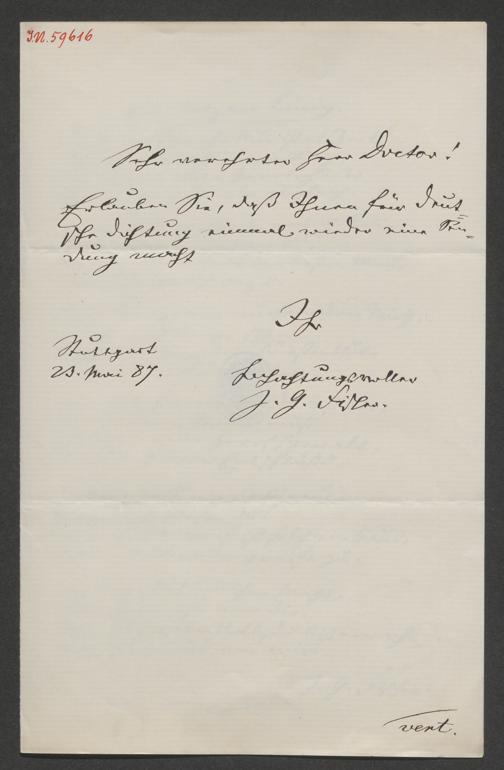 I.N. 59616
Sehr verehrter Herr Doctor!
Erlauben Sie, daß Ihnen für Deut=
sche Dichtung einmal wieder eine Sen=
dung macht
Ihr
Stuttgart
23. Mai 87.
hochachtungsvoller
J. G. Fischer.
vert.